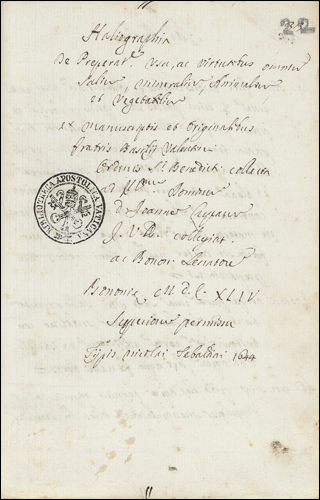 22
Haliographia
De Preparat.e usu, ac virtutibus omnium
Salium, mineralium, Animalium
et Vegetabilium
ex manuscriptis et Originalibus
fratris Basilij Valentini
Ordinis S.ti Benedicti collecta
ad
D. Joanne
J. V. D. collegiat.
ac Bonon. Senatore
BIBLIOTHECA APOSTOLICA VATICANA
Bononiæ M. D. C. XLIV.
Superiorum permissu
Typis Nicolai Tebaldini 1644